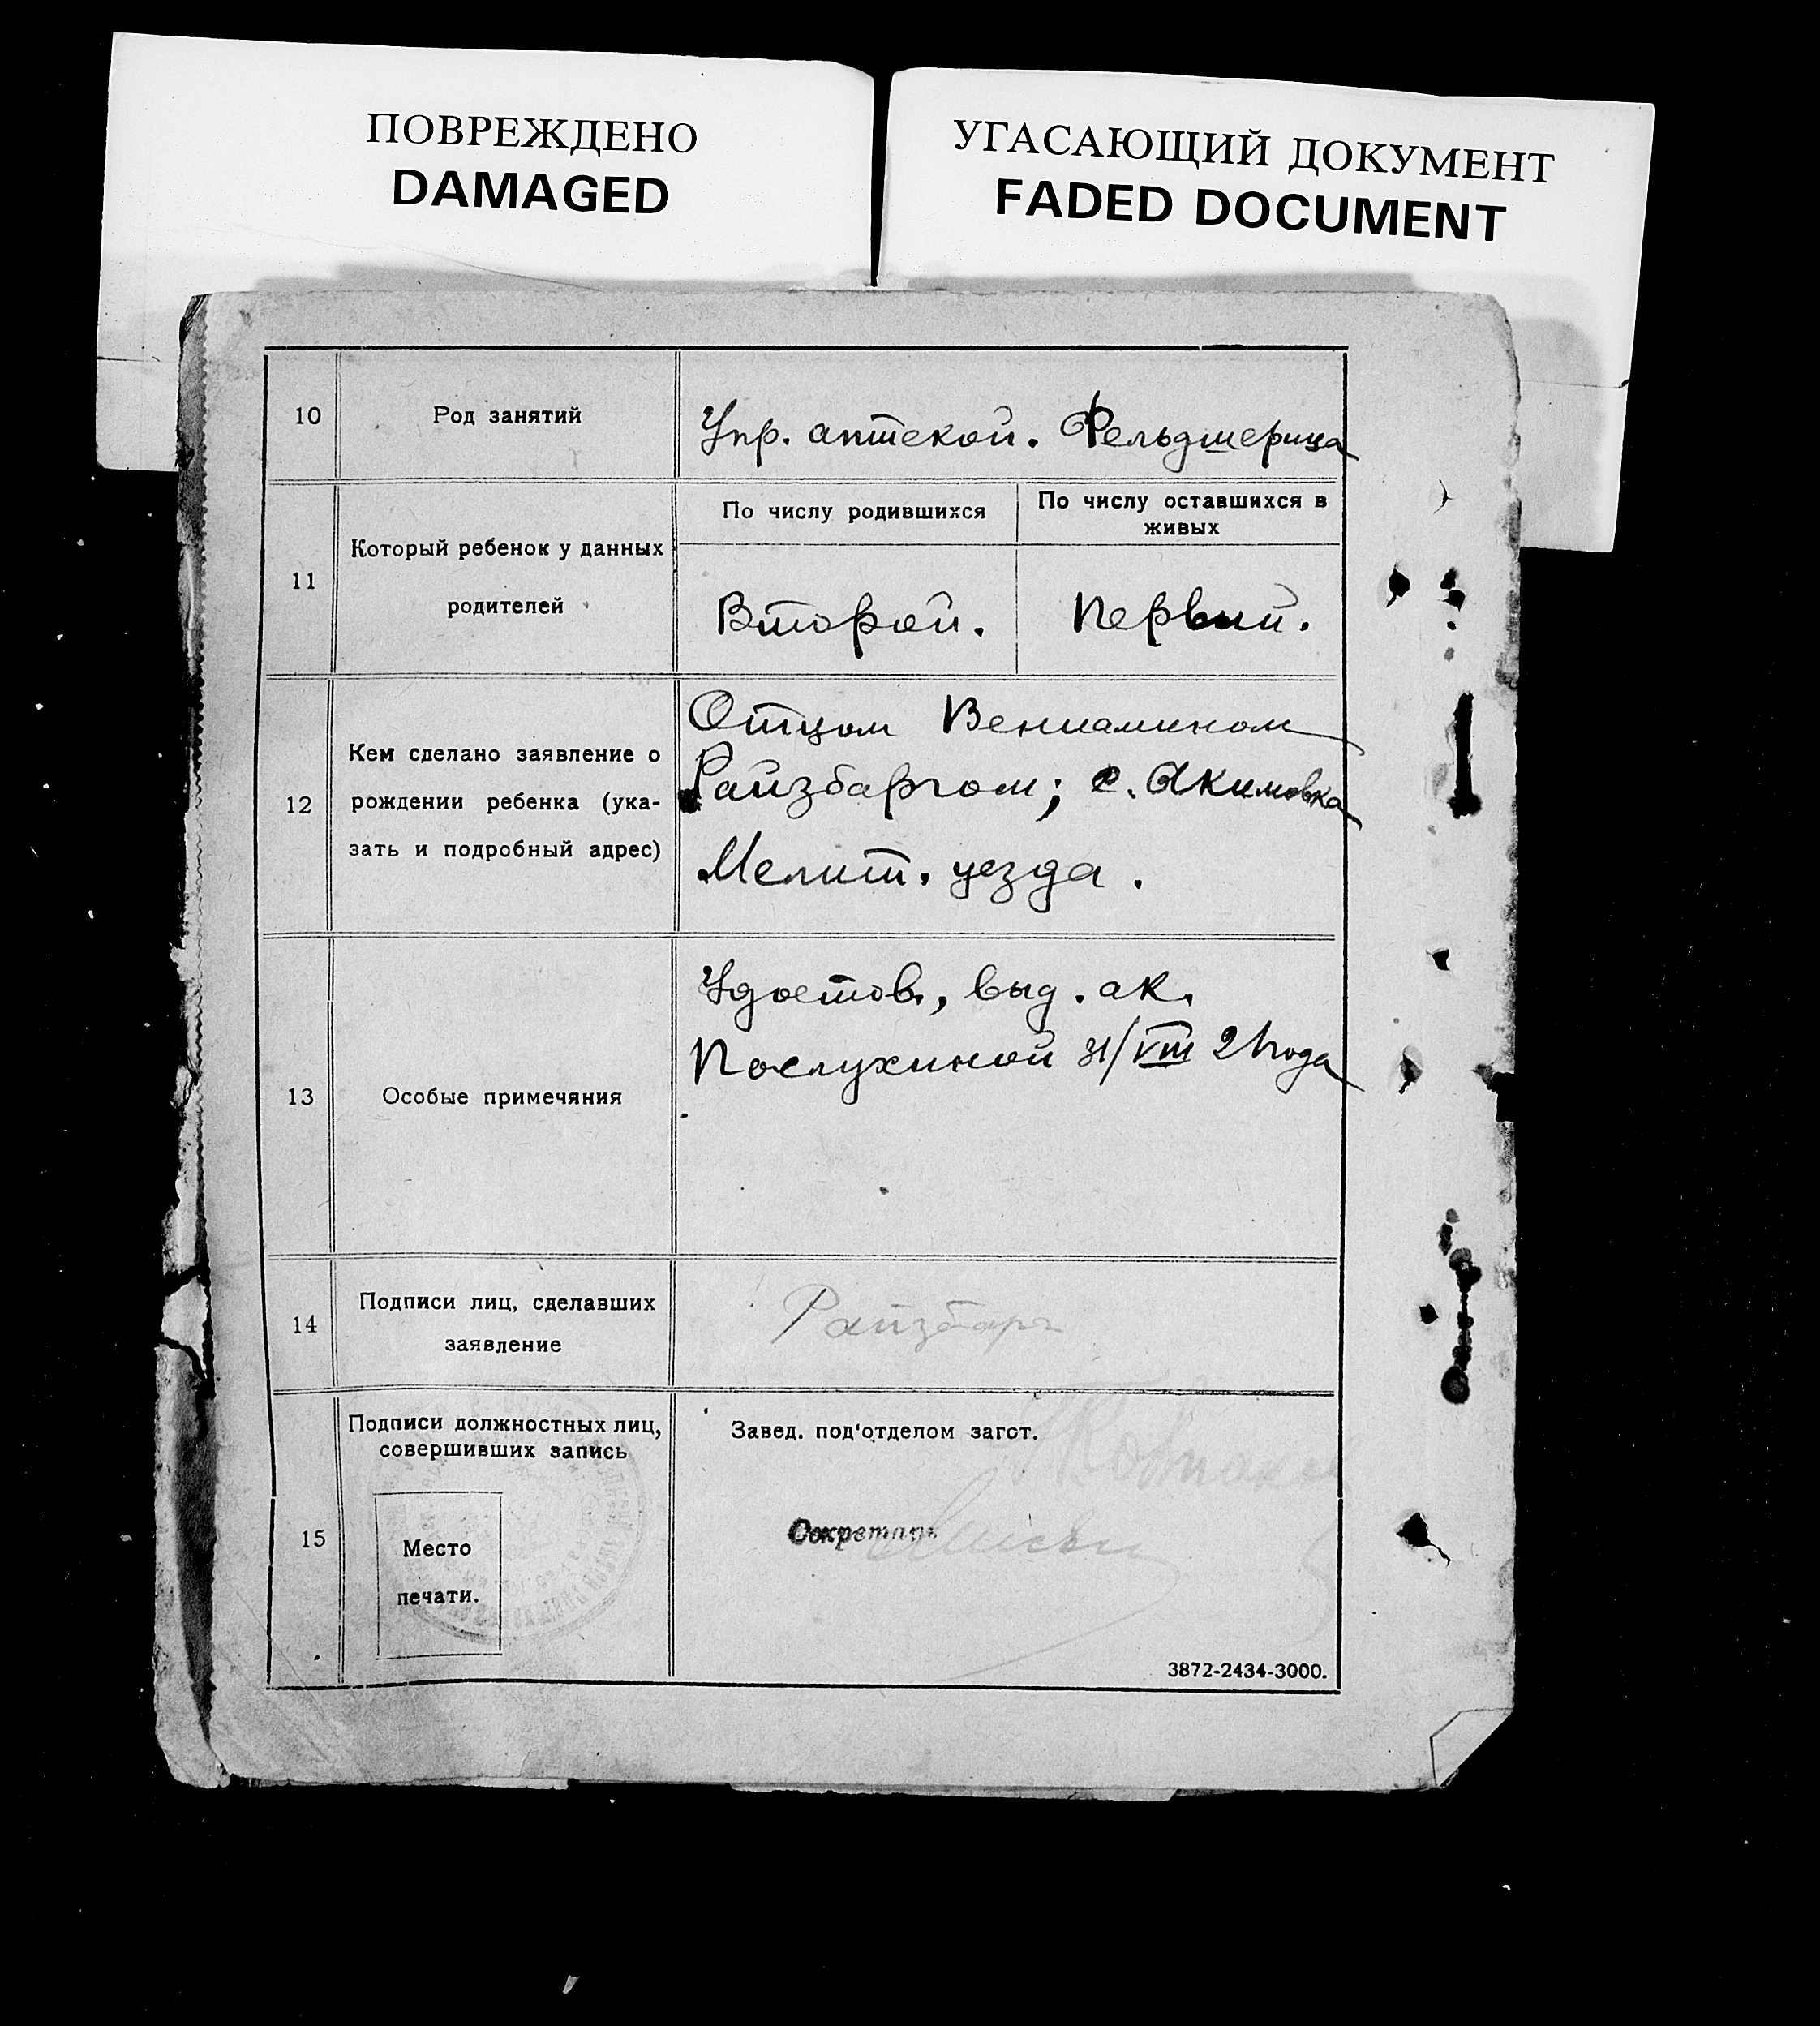 ПОВРЕЖДЕНО
DAMAGED
УГАСАЮЩИЙ ДОКУМЕНТ
FADED DOCUMENT
10 Род занятий Упр. аптекой. Фельдшерица
11 Который ребенок у данных родителей
По числу родившихся
По числу оставшихся в живых
Второй. Первый.
12 Кем сделано заявление о
рождении ребенка (ука-
зать и подробный адрес)
Отцом Вениамином
Райзбаргом; с. Акимовка
Мелит. уезда.
13 Особые примечяния
Удостов., выд. ак.
Послухиной 31/VIII 21 года
14 Подписи лиц, сделавших
заявление
Райзбарг
15 Подписи должностных лиц,
совершивших запись
Место
печати.
Завед. под‘отделом загст.
Секретарь
3872-2434-3000.